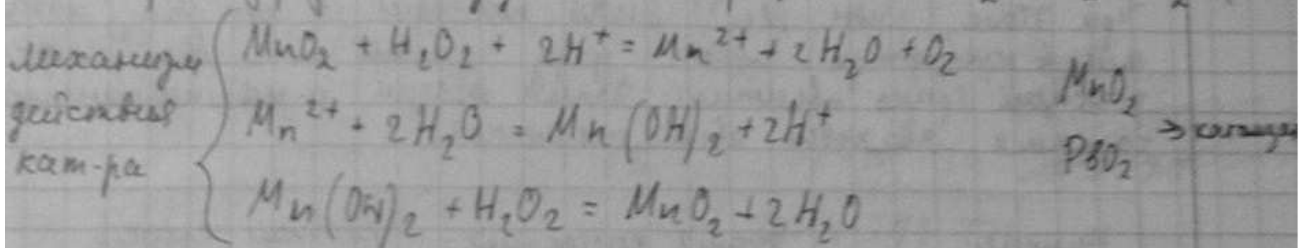 механизм
действия
кат-ра
MnO₂ + H₂O₂ + 2H⁺ = Mn²⁺ + 2H₂O + O₂
Mn²⁺ + 2H₂O = Mn(OH)₂ + 2H⁺
Mn(OH)₂ + H₂O₂ = MnO₂ + 2H₂O
MnO₂
PbO₂